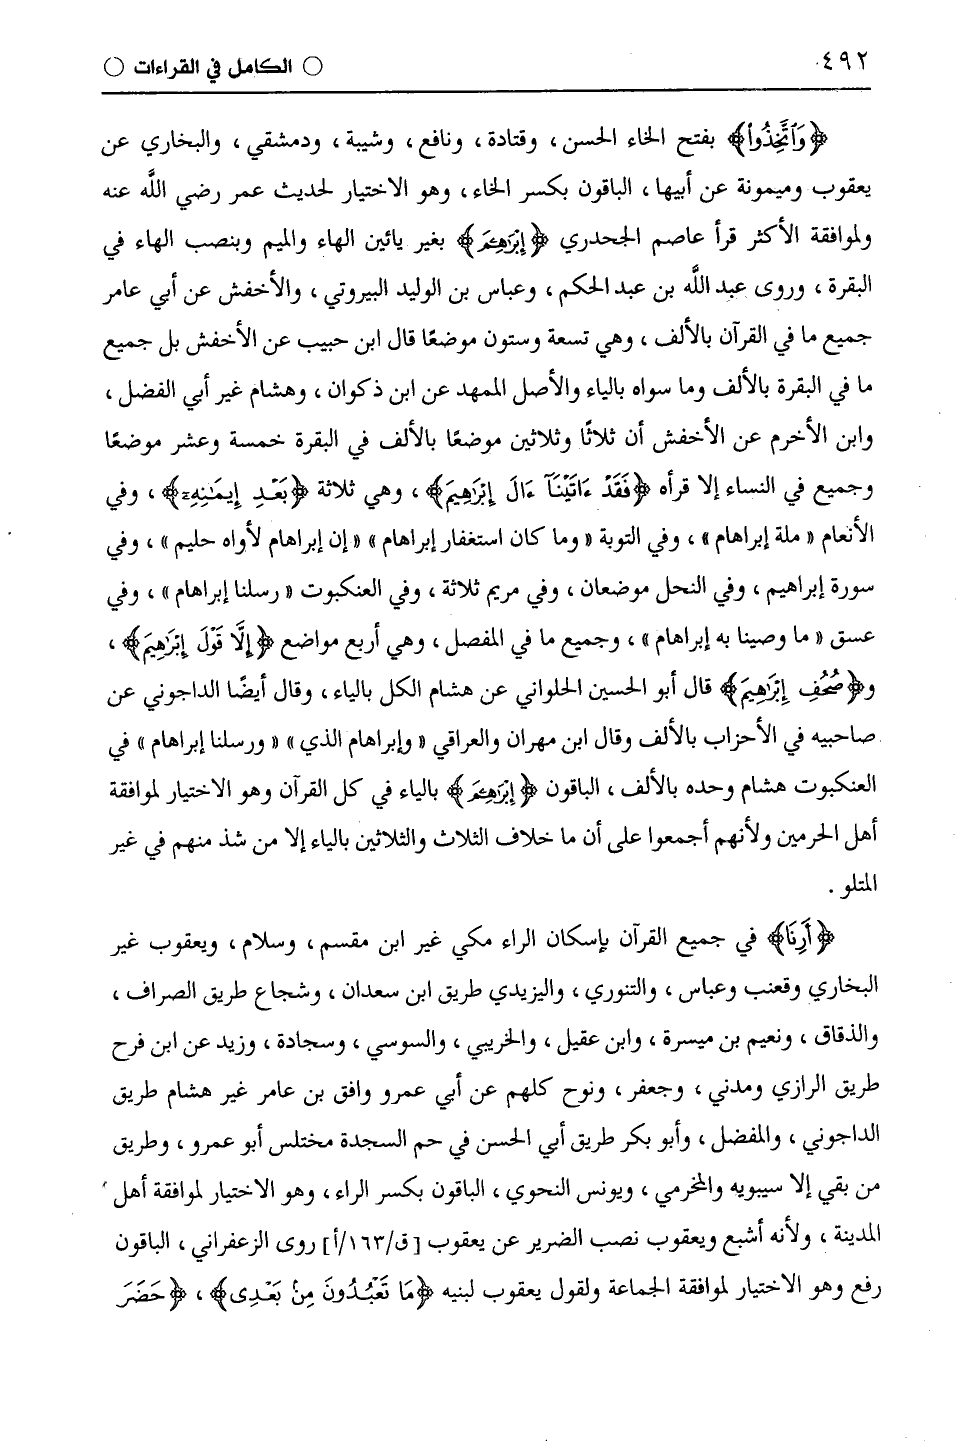 ٤٩٢
○ الكامل في القراءات ○
﴿وَٱتَّخِذُوا۟﴾ بفتح الخاء الحسن ، وقتادة ، ونافع ، وشيبة ، ودمشقي ، والبخاري عن
يعقوب وميمونة عن أبيها ، الباقون بكسر الخاء ، وهو الاختيار لحديث عمر رضي اللَّه عنه
ولموافقة الأكثر قرأ عاصم الجحدري ﴿إِبْرَٰهِـۧمَ﴾ بغير يائين الهاء والميم وبنصب الهاء في
البقرة ، وروى عبد اللَّه بن عبد الحكم ، وعباس بن الوليد البيروتي ، والأخفش عن أبي عامر
جميع ما في القرآن بالألف ، وهي تسعة وستون موضعًا قال ابن حبيب عن الأخفش بل جميع
ما في البقرة بالألف وما سواه بالياء والأصل الممهد عن ابن ذكوان ، وهشام غير أبي الفضل ،
وابن الأخرم عن الأخفش أن ثلاثًا وثلاثين موضعًا بالألف في البقرة خمسة وعشر موضعًا
وجميع في النساء إلا قرأه ﴿فَقَدْ ءَاتَيْنَآ ءَالَ إِبْرَٰهِيمَ﴾ ، وهي ثلاثة ﴿بَعْدَ إِيمَـٰنِهِۦٓ﴾ ، وفي
الأنعام « ملة إبراهام » ، وفي التوبة « وما كان استغفار إبراهام » « إن إبراهام لأواه حليم » ، وفي
سورة إبراهيم ، وفي النحل موضعان ، وفي مريم ثلاثة ، وفي العنكبوت « رسلنا إبراهام » ، وفي
عسق « ما وصينا به إبراهام » ، وجميع ما في المفصل ، وهي أربع مواضع ﴿إِلَّا قَوْلَ إِبْرَٰهِيمَ﴾ ،
و﴿صُحُفِ إِبْرَٰهِيمَ﴾ قال أبو الحسين الحلواني عن هشام الكل بالياء ، وقال أيضًا الداجوني عن
صاحبيه في الأحزاب بالألف وقال ابن مهران والعراقي « وإبراهام الذي » « ورسلنا إبراهام » في
العنكبوت هشام وحده بالألف ، الباقون ﴿إِبْرَٰهِـۧمَ﴾ بالياء في كل القرآن وهو الاختيار لموافقة
أهل الحرمين ولأنهم أجمعوا على أن ما خلاف الثلاث والثلاثين بالياء إلا من شذ منهم في غير
المتلو .
﴿أَرِنَا﴾ في جميع القرآن بإسكان الراء مكي غير ابن مقسم ، وسلام ، ويعقوب غير
البخاري وقعنب وعباس ، والتنوري ، واليزيدي طريق ابن سعدان ، وشجاع طريق الصراف ،
والذقاق ، ونعيم بن ميسرة ، وابن عقيل ، والخريبي ، والسوسي ، وسجادة ، وزيد عن ابن فرح
طريق الرازي ومدني ، وجعفر ، ونوح كلهم عن أبي عمرو وافق بن عامر غير هشام طريق
الداجوني ، والمفضل ، وأبو بكر طريق أبي الحسن في حم السجدة مختلس أبو عمرو ، وطريق
من بقي إلا سيبويه والمخرمي ، ويونس النحوي ، الباقون بكسر الراء ، وهو الاختيار لموافقة أهل
المدينة ، ولأنه أشبع ويعقوب نصب الضرير عن يعقوب [ق/١٦٣/أ] روى الزعفراني ، الباقون
رفع وهو الاختيار لموافقة الجماعة ولقول يعقوب لبنيه ﴿مَا تَعْبُدُونَ مِنۢ بَعْدِى﴾ ، ﴿حَضَرَ